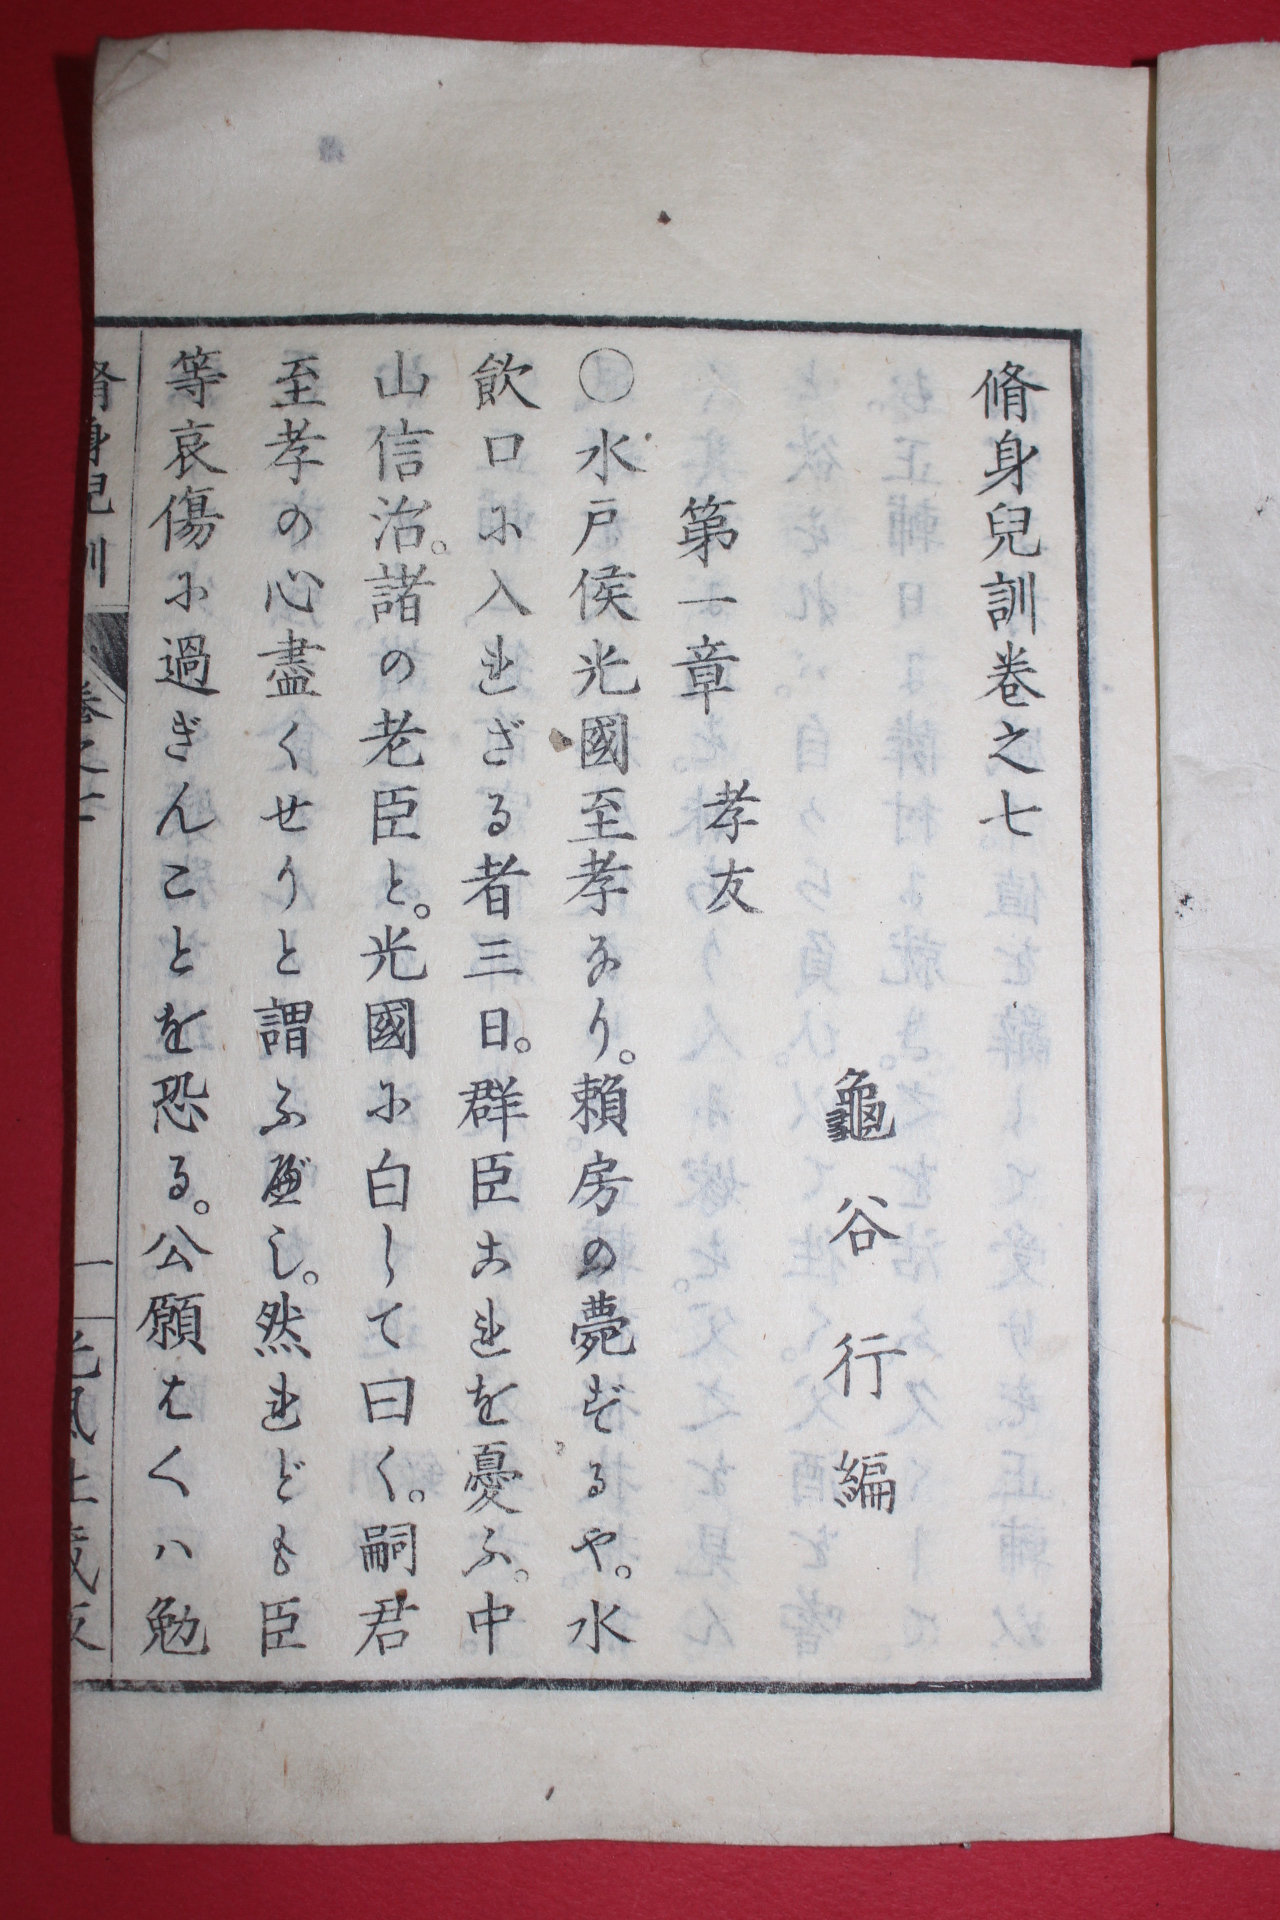 脩身兒訓巻之七
龜谷行編
第一章　孝友
○水戸侯光國至孝なり。頼房の薨ずるや。水
飲口に入れざる者三日。群臣これを憂ふ。中
山信治。諸の老臣と。光國に白して曰く。嗣君
至孝の心盡くせりと謂ふべし。然れども臣
等哀傷に過ぎんことを恐る。公願はくハ勉
脩身兒訓　巻之七　一　光風社蔵版